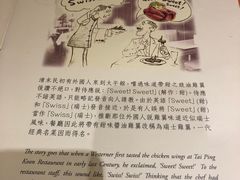 "Swiss!
Sweet!
清末民初有外國人來到太平館，嚐過味道帶甜之豉油雞翼
後讚不絕口，對侍應說：「Sweet! Sweet!」(解作：甜)，侍應
不諳英語，只能略記發音向人請教。由於英語「Sweet」(甜)
和「Swiss」(瑞士)發音接近，於是有人誤將「Sweet」(甜)當
作「Swiss」(瑞士)，推斷那位外國人說雞翼味道近似瑞士
風味，餐廳因此將帶有甜味醬油雞翼改稱為瑞士雞翼，一代
經典名菜因而得名。
The story goes that when a Westerner first tasted the chicken wings at Tai Ping
Koon Restaurant in early last Century, he exclaimed, 'Sweet! Sweet!' To the
restaurant staff, this sound like, 'Swiss! Swiss!' Thinking that the chef had